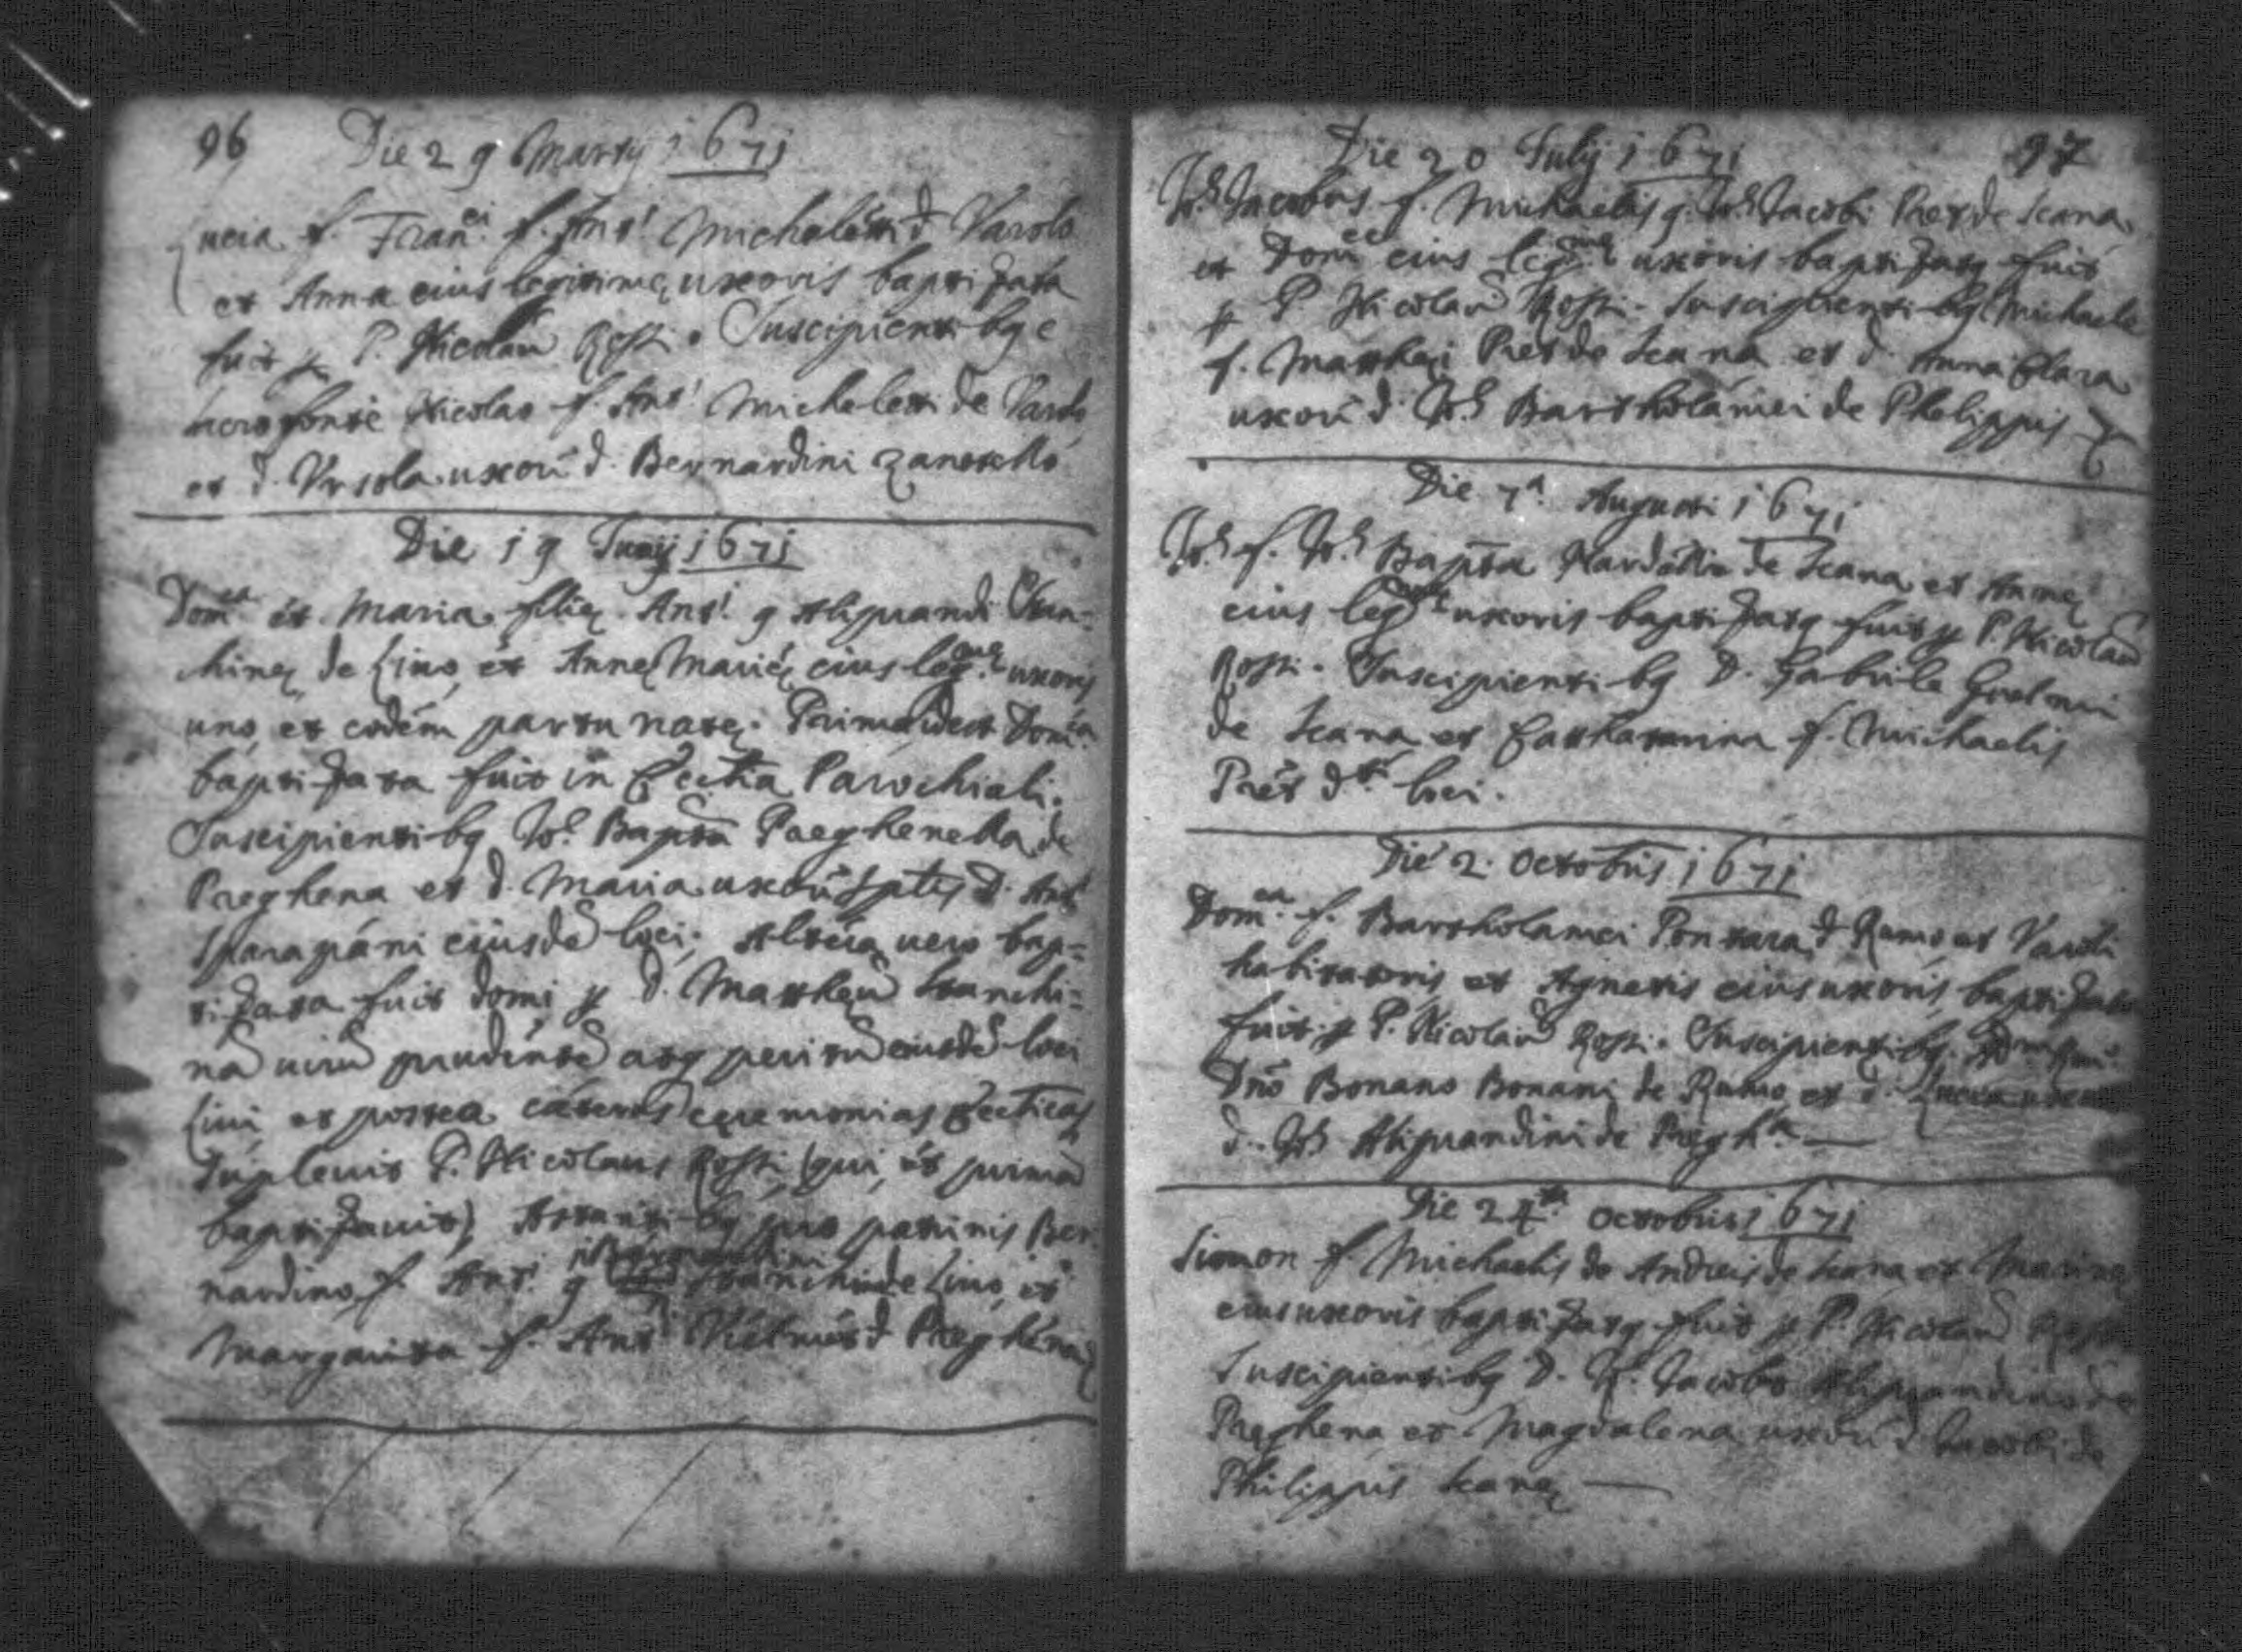 96 Die 29 Martij 1671
Lucia f. Fran.ci f. Ant.i Micheletti d Varolo
et Anna eius legitimę uxoris baptizata
fuit p P. Nicolaū Rossi. Suscipientibq e
sacro fonte Nicolao f. Ant.i Micheletti de Varolo
et d. Vrsola uxoū d. Bernardini Zanotelli
Die 19 Junij 1671
Dom.ca et Maria filię Ant.i q Aliprandi Stan-
chinę de Livo, et Annę Marię eius leg.mę uxoris
uno, et eodem partu natę. Prima, idest Dom.ca
baptizata fuit in Ecctia Parochiali.
Suscipientibq Jo.s Bapta Preghenella de
Preghena et d. Maria uxoū d. Ant.
Sparapani eiusdē loci; Altera vero bap-
tizata fuit domi p d. Matthęū Stanchi-
nā virū prudentē atq peritū eiusdē loci
Livi et postea cæteras cęremonias Eccticas
Suplevit P. Nicolaus Rossi, (qui, et primā
baptizavit) Astantibq pro patrinis Ber-
nardino f. Ant.i q Stanchinę de Livo, et
Margarita f. Ant.i d Preghena
97
Die 20 Julij 1671
Jo.s Jacobus f. Michaelis q. Jo.s Jacobi Pret de Scana
et Dom.cę eius leg.mę uxoris baptizatq fuit
p P. Nicolaū Rossi. Suscipientibq Michaele
f. Matthęi Pret de Scana et d. Anna Clara
uxoū d. Jo.s Bartholamei de Phelippis
Die 7.a Augusti 1671
Jo.s f. Jo.s Bapta de Scana et Annę
eius leg.mę uxoris baptizatq fuit p P. Nicolaū
Rossi. Suscipientibq D. Gabriele
de Scana et Catharina f. Michaelis
Pret d.ti loci.
Die 2. Octobris 1671
Dom.ca f. Bartholamei Pontara d Rumo, et Varoli
habitatoris et Agnetis eius uxoris, baptizata
fuit p P. Nicolaū Rossi. Suscipientibq
Dno Bonano Bonani de Rumo, et d. Lucia uxoū
d. Jo.s Aliprandini de Pregh.a
Die 24.ta Octobris 1671
Simon f. Michaelis de Andreis de Scana et Marinę
eius uxoris baptizatq fuit p P. Nicolaū Rossi
Suscipientibq D. Jo. Jacobo Aliprandino de
Preghena et Magdalena uxoū d. Jacobi de
Philippis Scanę